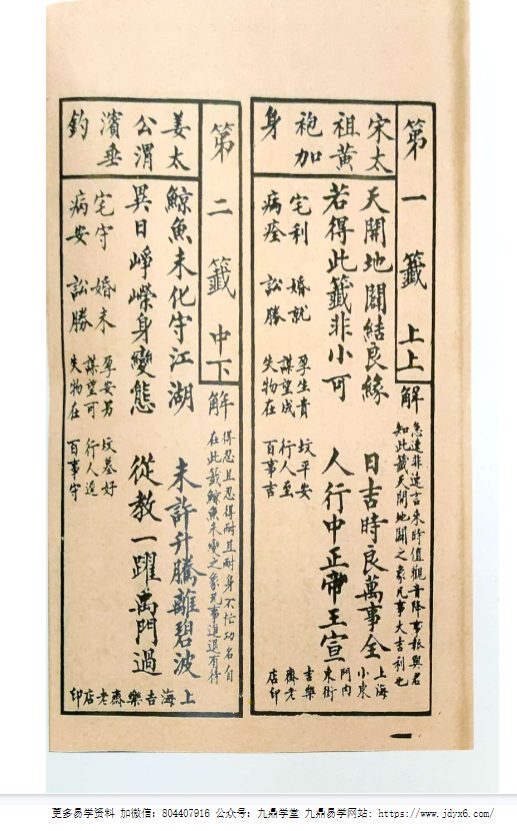 第一籤 上上
宋太
祖黃
袍加
身
天開地闢結良緣 日吉時良萬事全
若得此籤非小可 人行中正帝王宣
宅利 婚就 孕生貴 坟平安
謀望成 行人至
病痊 訟勝 失物在 百事吉
解
急速非速言未時值觀音降事報與君
知此籤天開地闢之象凡事大吉利也
上海
小東
門內
東街
吉樂
齋老
店印
一
第二籤 中下
姜太
公渭
濱垂
釣
鯨魚未化守江湖 未許升騰離碧波
異日崢嶸身變態 從教一躍禹門過
宅守 婚未 孕安男 坟墓好
謀望可 行人返
病安 訟勝 失物在 百事守
解
得忍且忍得耐且耐身不忙功名自
在此籤鯨魚未變之象凡事進退有待
上海吉樂齋老店印
更多易学资料 加微信：804407916 公众号：九鼎学堂 九鼎易学网站：https://www.jdyx6.com/